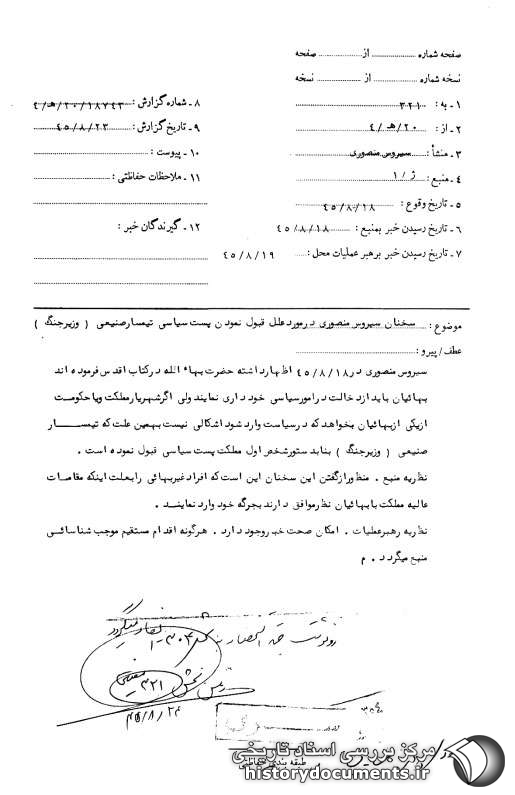 صفحه شماره ........ از ........ صفحه
نسخه شماره ........ از ........ نسخه
۱ - به : ۳۲۱
۲ - از : ۲۰/هـ/۴
۳ - منشأ : سیروس منصوری
۴ - منبع : ژ/۱
۵ - تاریخ وقوع : ۴۵/۸/۱۸
۶ - تاریخ رسیدن خبر بمنبع : ۴۵/۸/۱۸
۷ - تاریخ رسیدن خبر برهبر عملیات محل : ۴۵/۸/۱۹
۸ - شماره گزارش : ۴/هـ/۲۰/۱۸۷۴۳
۹ - تاریخ گزارش : ۴۵/۸/۲۳
۱۰ - پیوست :
۱۱ - ملاحظات حفاظتی :
۱۲ - گیرندگان خبر :
موضوع : سخنان سیروس منصوری درمورد علل قبول نمودن پست سیاسی تیمسار صنیعی ( وزیرجنگ )
عطف / پیرو :
سیروس منصوری در ۴۵/۸/۱۸ اظهار داشته حضرت بهاء الله درکتاب اقدس فرموده اند
بهائیان باید ازدخالت درامورسیاسی خود داری نمایند ولی اگرشهریارمملکت ویاحکومت
ازیکی ازبهائیان بخواهد که درسیاست وارد شود اشکالی نیست بهمین علت که تیمسار
صنیعی ( وزیرجنگ ) بنابدستورشخص اول مملکت پست سیاسی قبول نموده است .
نظریه منبع . منظورازگفتن این سخنان این است که افراد غیربهائی رابعلت اینکه مقامات
عالیه مملکت بابهائیان نظرموافق دارند بجرگه خود وارد نمایند .
نظریه رهبرعملیات . امکان صحت خبر وجود دارد . هرگونه اقدام مستقیم موجب شناسائی
منبع میگردد . م
رونوشت جهت استحضار به
میگردد
رئیس بخش ۳۲۱
۴۵/۸/۲۴
طبقه بندی حفاظتی
مرکز بررسی اسناد تاریخی
historydocuments.ir